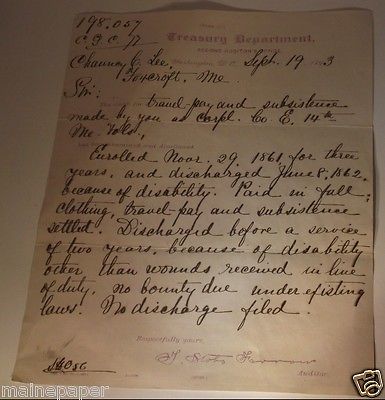 198.057
Treasury Department,
SECOND AUDITOR'S OFFICE,
Washington, D.C. Sept. 19 3
Chauncy C. Lee,
Foxcroft, Me.
Sir:
travel pay and subsistence
made by you as Corpl. Co E. 14th
Me. Vols.,
Enrolled Novr. 29, 1861 for three
years, and discharged June 8, 1862,
because of disability. Paid in full
clothing, travel-pay and subsistence
settlnt. Discharged before a service
of two years, because of disability
other than wounds received in line
of duty. no bounty due under existing
laws. No discharge filed.
Respectfully yours,
Auditor.
mainepaper
mainepaper